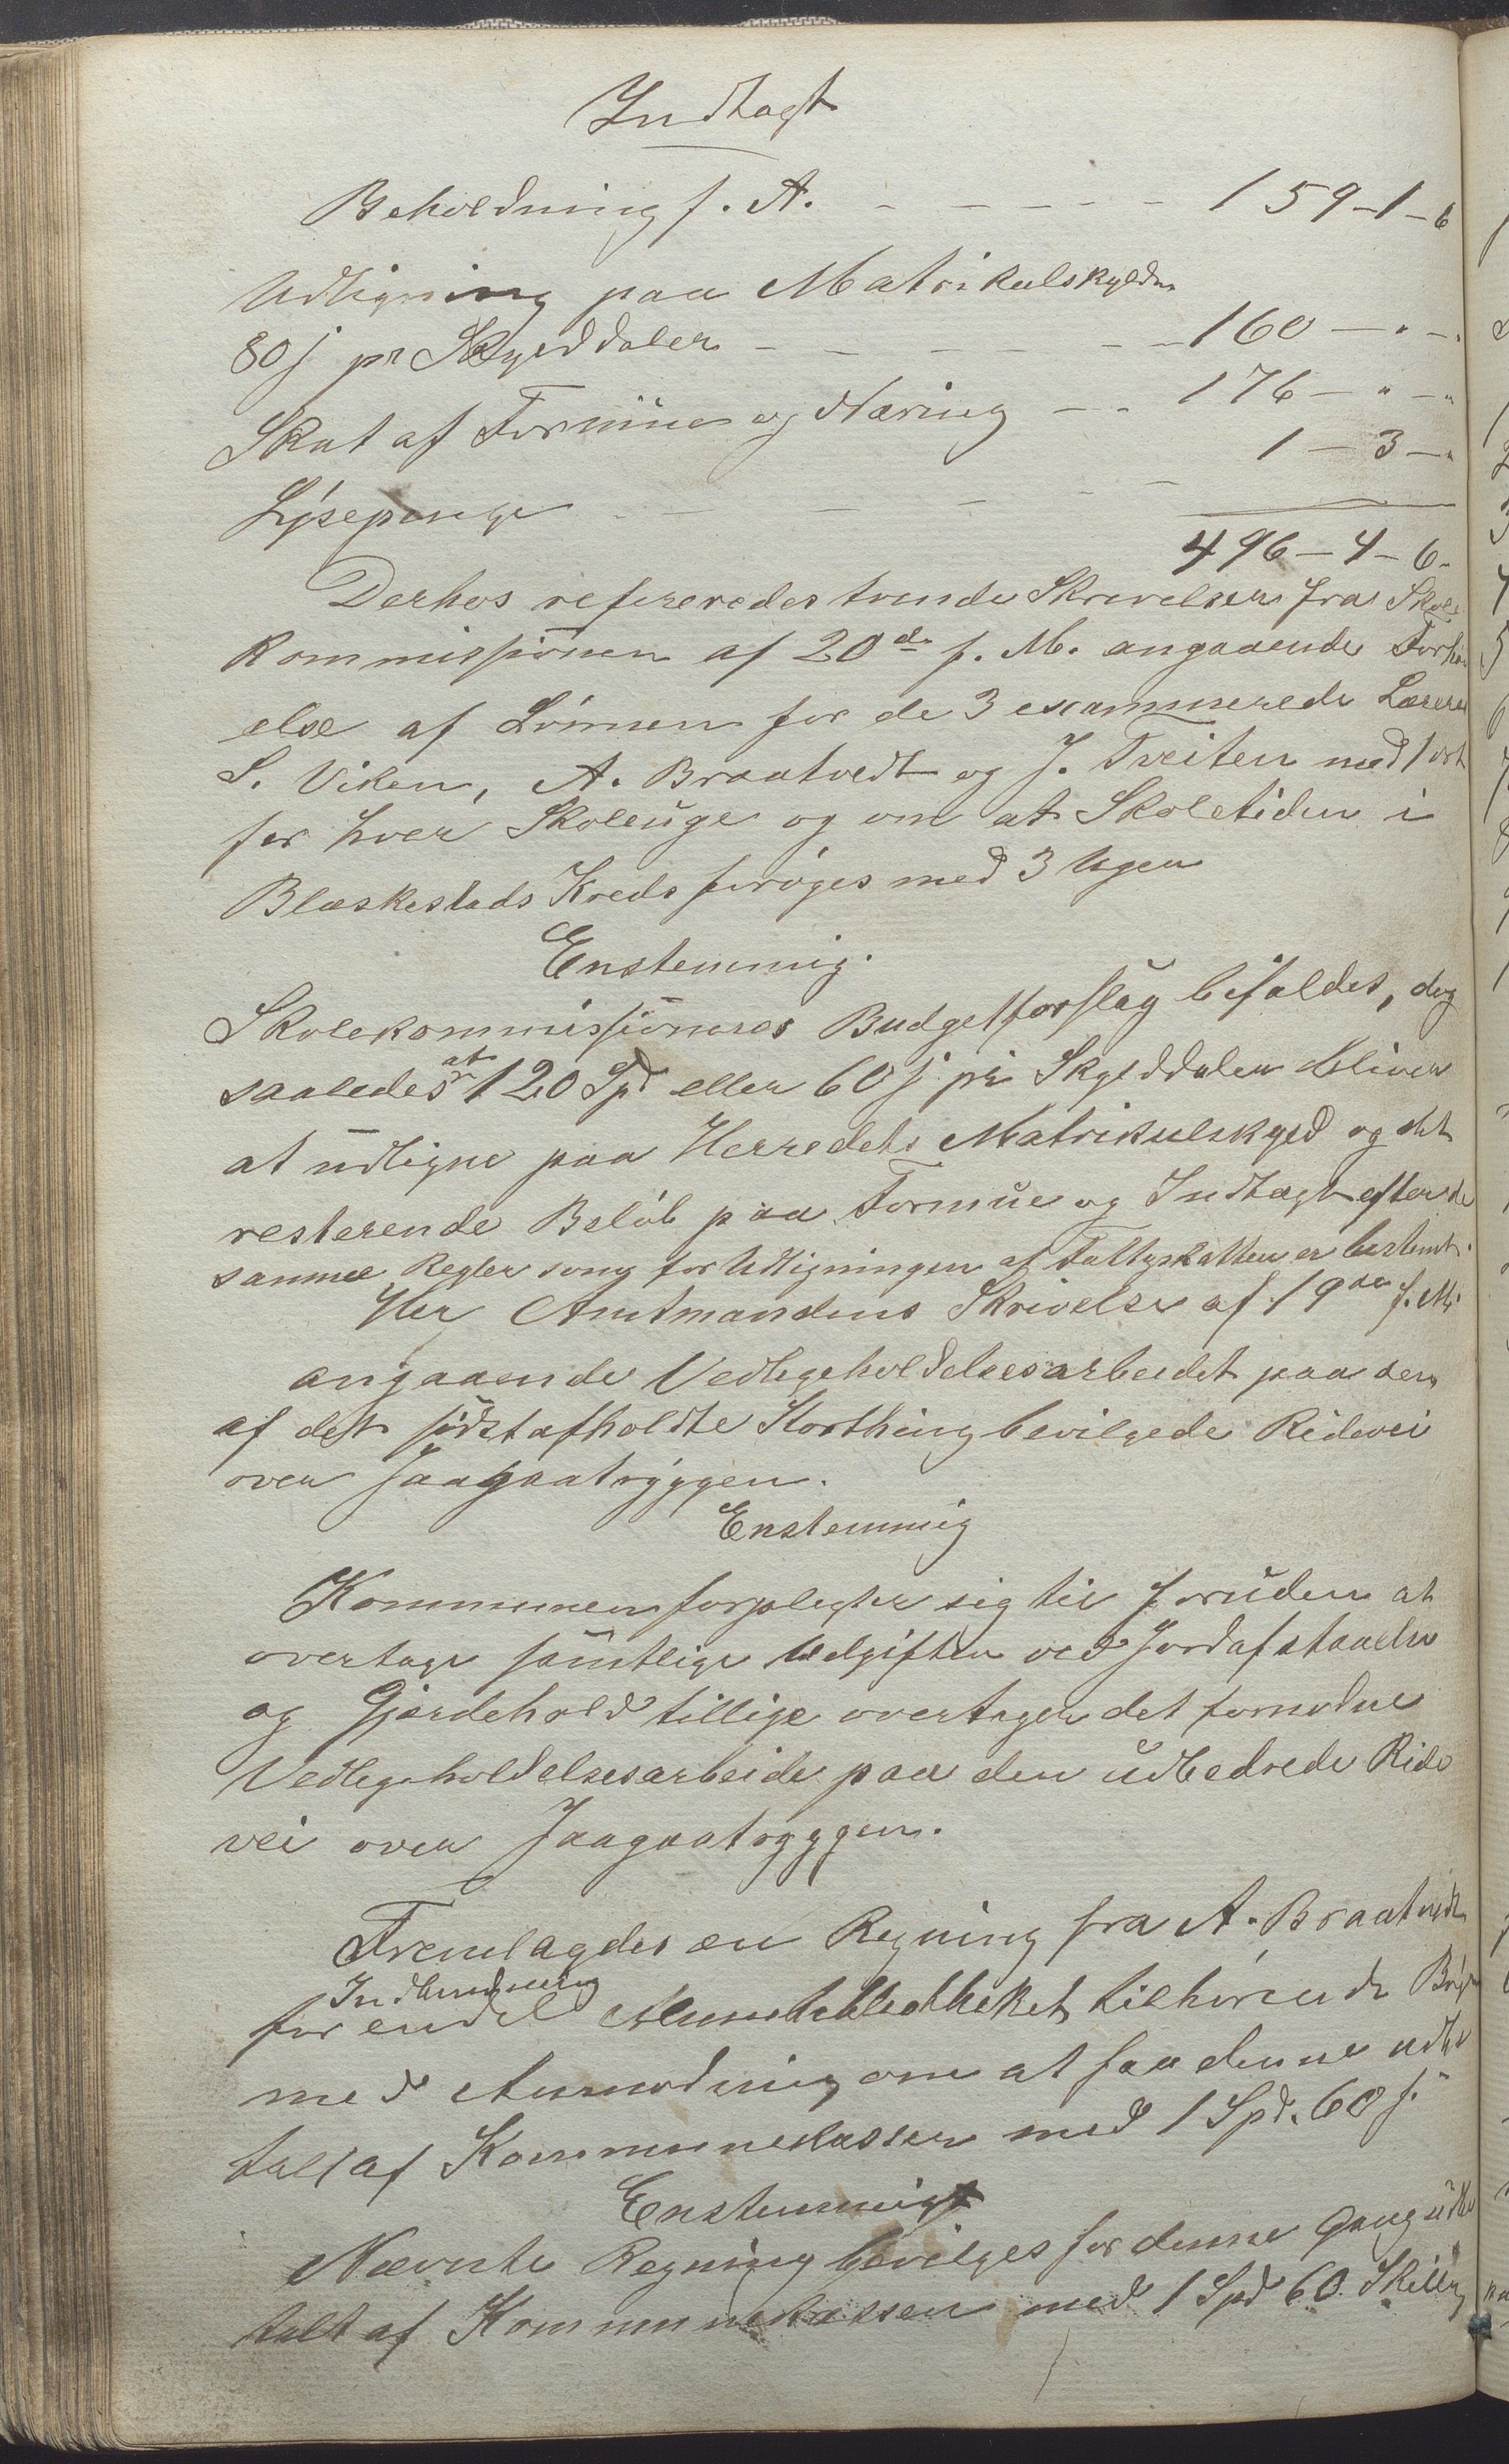 Indtægt
Beholdning f. A. - - - - - - 159-1-6
Udligning paa Matrikulskylden
80 ſ pr Skylddaler - - - - - - 160 - " - "
Skat af Formue og Næring - - 176 - " - "
Lysepenge - - - - - - 1 - 3 - "
496 - 4 - 6
Derhos refereredes tvende Skrivelser fra Skole
kommissionen af 20de f. M. angaaende Forhøi
else af Lønnen for de 3 examinerede Lærere
S. Viken, A. Braatvedt og J. Tveiten med 1 ort
for hver Skoleuge og om at Skoletiden i
Blaskestads Kreds forøges med 3 Uger
Enstemmig.
Skolekommissionens Budgetforslag bifaldes, dog
saaledes at 120 Spd eller 60 ſ pr Skylddaler bliver
at udligne paa Herredets Matrikulskyld og det
resterende Beløb paa Formue og Indtægt efter de
samme Regler som for Udligningen af Fattigskatten er bestemt.
Her Amtmandens Skrivelse af 19de f. M.
angaaende Vedligeholdelsesarbeidet paa den
af det sidstafholdte Storthing bevilgede Ridevei
over Jaagaatryggen.
Enstemmig
Kommunen forpligter sig til foruden at
overtage samtlige Udgifter ved Jordafstaaelse
og Gjerdehold tillige overtager det fornødne
Vedligeholdelsesarbeide paa den udbedrede Ride
vei over Jaagaatryggen.
Fremlagdes en Regning fra A. Braatvedt
Indbinding
for endel Almuebibliotheket tilhørende Bøger
med Anmodning om at faa denne udbe
talt af Kommunekassen med 1 Spd. 60 ſ.
Enstemmigt
Nævnte Regning bevilges for denne Gang udbe
talt af Kommunekassen med 1 Spd 60 Skilling